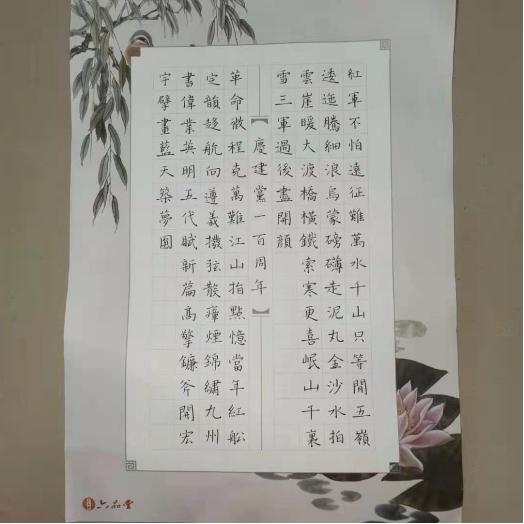 紅軍不怕遠征難萬水千山只等閒五嶺
逶迤騰細浪烏蒙磅礴走泥丸金沙水拍
雲崖暖大渡橋橫鐵索寒更喜岷山千裏
雪三軍過後盡開顏
【慶建黨一百周年】
革命徵程克萬難江山指點憶當年紅船
定韻趨航向遵義撥弦散瘴煙錦繡九州
書偉業英明五代賦新篇高擎鐮斧開宏
宇擘畫藍天築夢圆
六品堂